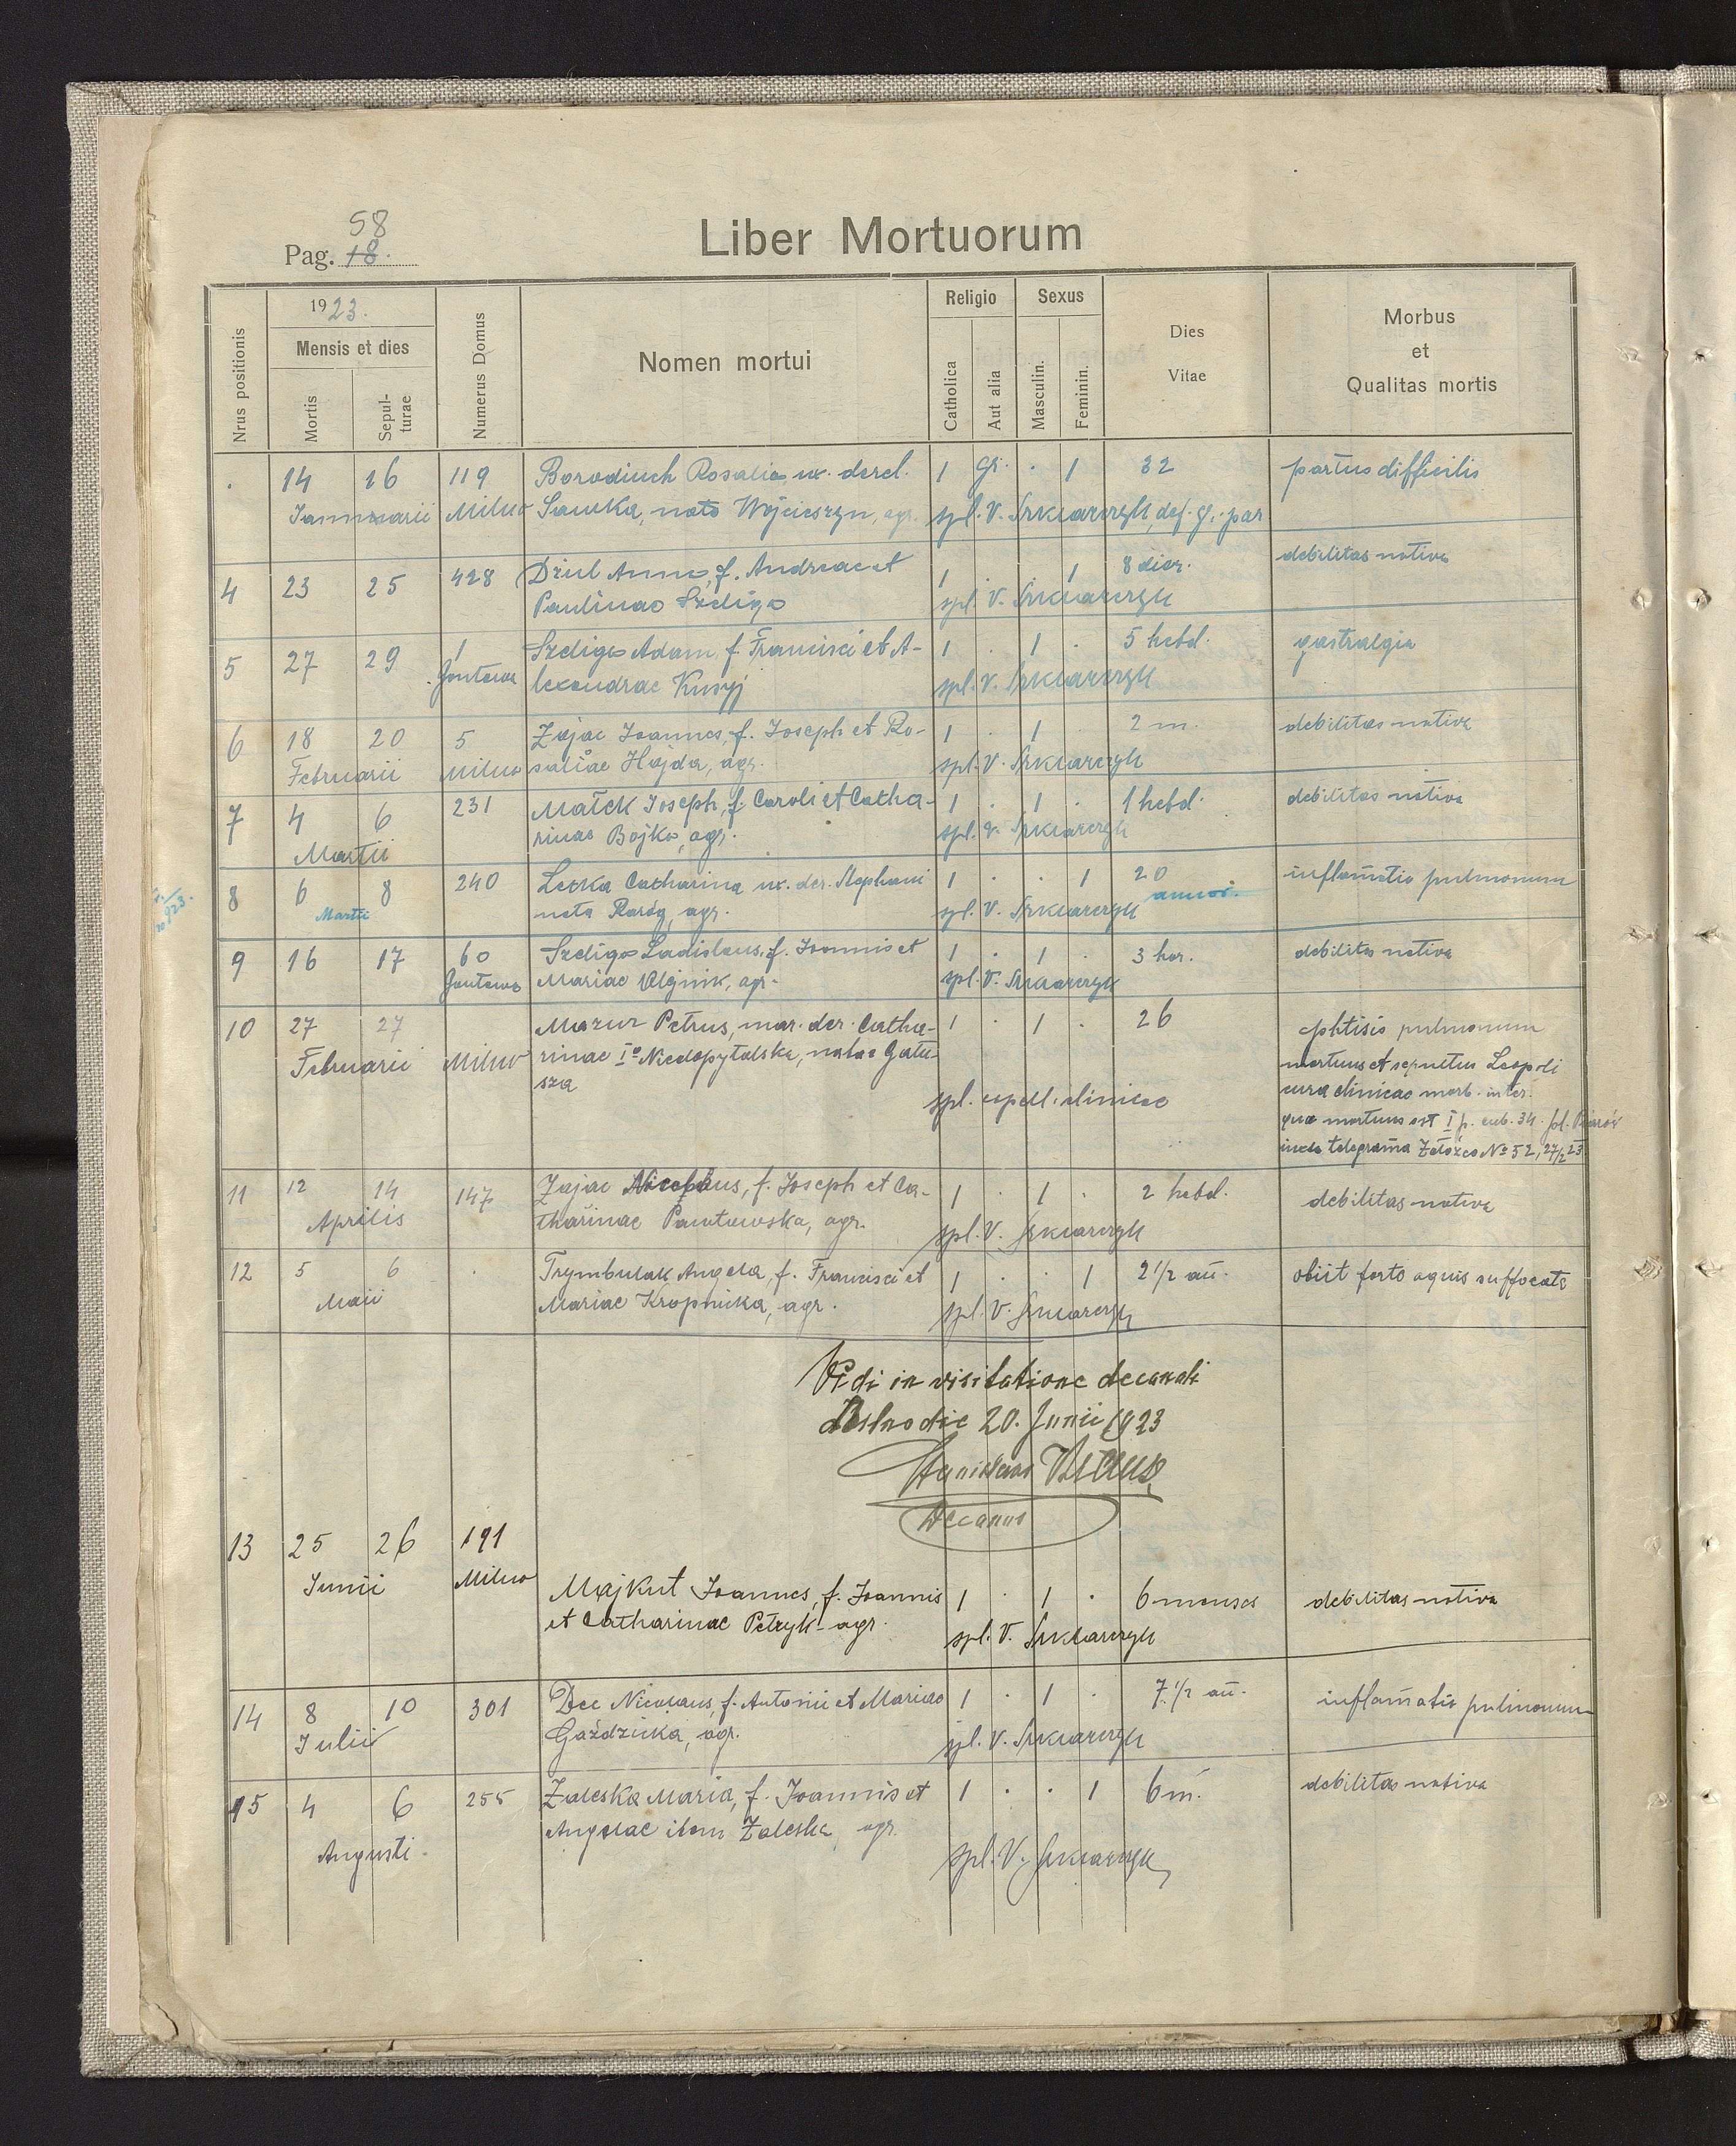 58
Pag. 18.
Liber Mortuorum
Nrus positionis
1923.
Mensis et dies
Mortis
Sepul-turae
Numerus Domus
Nomen mortui
Religio
Catholica
Aut alia
Sexus
Masculin.
Feminin.
Dies
Vitae
Morbus
et
Qualitas mortis
. 14 16 119 Borodiuch Rosalia ux. derel. 1 gr. . 1 32 partus difficilis
Januarii Milno Sawka, nata Wojcieszyn, agr. spl. V. def. gr. par
4 23 25 428 Dziul Anna, f. Andreae et 1 . . 1 8 dier. debilitas nativa
Paulinae Szeliga spl. V.
5 27 29 1 Szeliga Adam, f. Francisci et A- 1 . 1 . 5 hebd. gastralgia
Gontowa lexandrae Kusyj spl. V.
6 18 20 5 Zając Joannes, f. Joseph et Ro- 1 . 1 . 2 m. debilitas nativa
Februarii Milno saliae Hajda, agr. spl. V.
7 4 6 231 Małek Joseph, f. Caroli et Catha- 1 . 1 . 1 hebd. debilitas nativa
Martii rinae Bojko, agr. spl. V.
8 6 8 240 Letka Catharina ux. der. Stephani 1 . . 1 20 inflam̄atio pulmonum
Martii nata Raróg, agr. spl. V. annor.
9 16 17 60 Szeliga Ladislaus, f. Joannis et 1 . 1 . 3 hor. debilitas nativa
Gontowa Mariae Olejnik, agr. spl. V.
10 27 27 Mazur Petrus, mar. der. Catha- 1 . 1 . 26 phtisis pulmonum
Februarii Milno rinae I° Niedopytalska, natae Gału- mortuus et sepultus Leopoli
sza cura clinicae morb. inter.
spl. capell. clinicae qua mortuus est I p. sub. 34. pl.
telegrama Załoźce № 52, 27/2 23
11 12 14 147 Zając Nicolaus, f. Joseph et Ca- 1 . 1 . 2 hebd. debilitas nativa
Aprilis tharinae Pawłowska, agr. spl. V.
12 5 6 . Trymbulak Angela, f. Francisci et 1 . . 1 2 1/2 an̄. obiit forto aquis suffocata
Maii Mariae Kropnicka, agr. spl. V.
Vidi in visitatione decanali
die 20. Junii 1923
Stanislaus
Decanus
13 25 26 191
Junii Milno Majkut Joannes, f. Joannis 1 . 1 . 6 menses debilitas nativa
et Catharinae Petryk agr. spl. V.
14 8 10 301 Dec Nicolaus, f. Antonii et Mariae 1 . 1 . 7 1/2 an̄. inflam̄atio pulmonum
Julii Gaździcka, agr. spl. V.
15 4 6 255 Zaleska Maria, f. Joannis et 1 . . 1 6 m. debilitas nativa
Augusti. Angelae item Zaleska agr. spl. V.